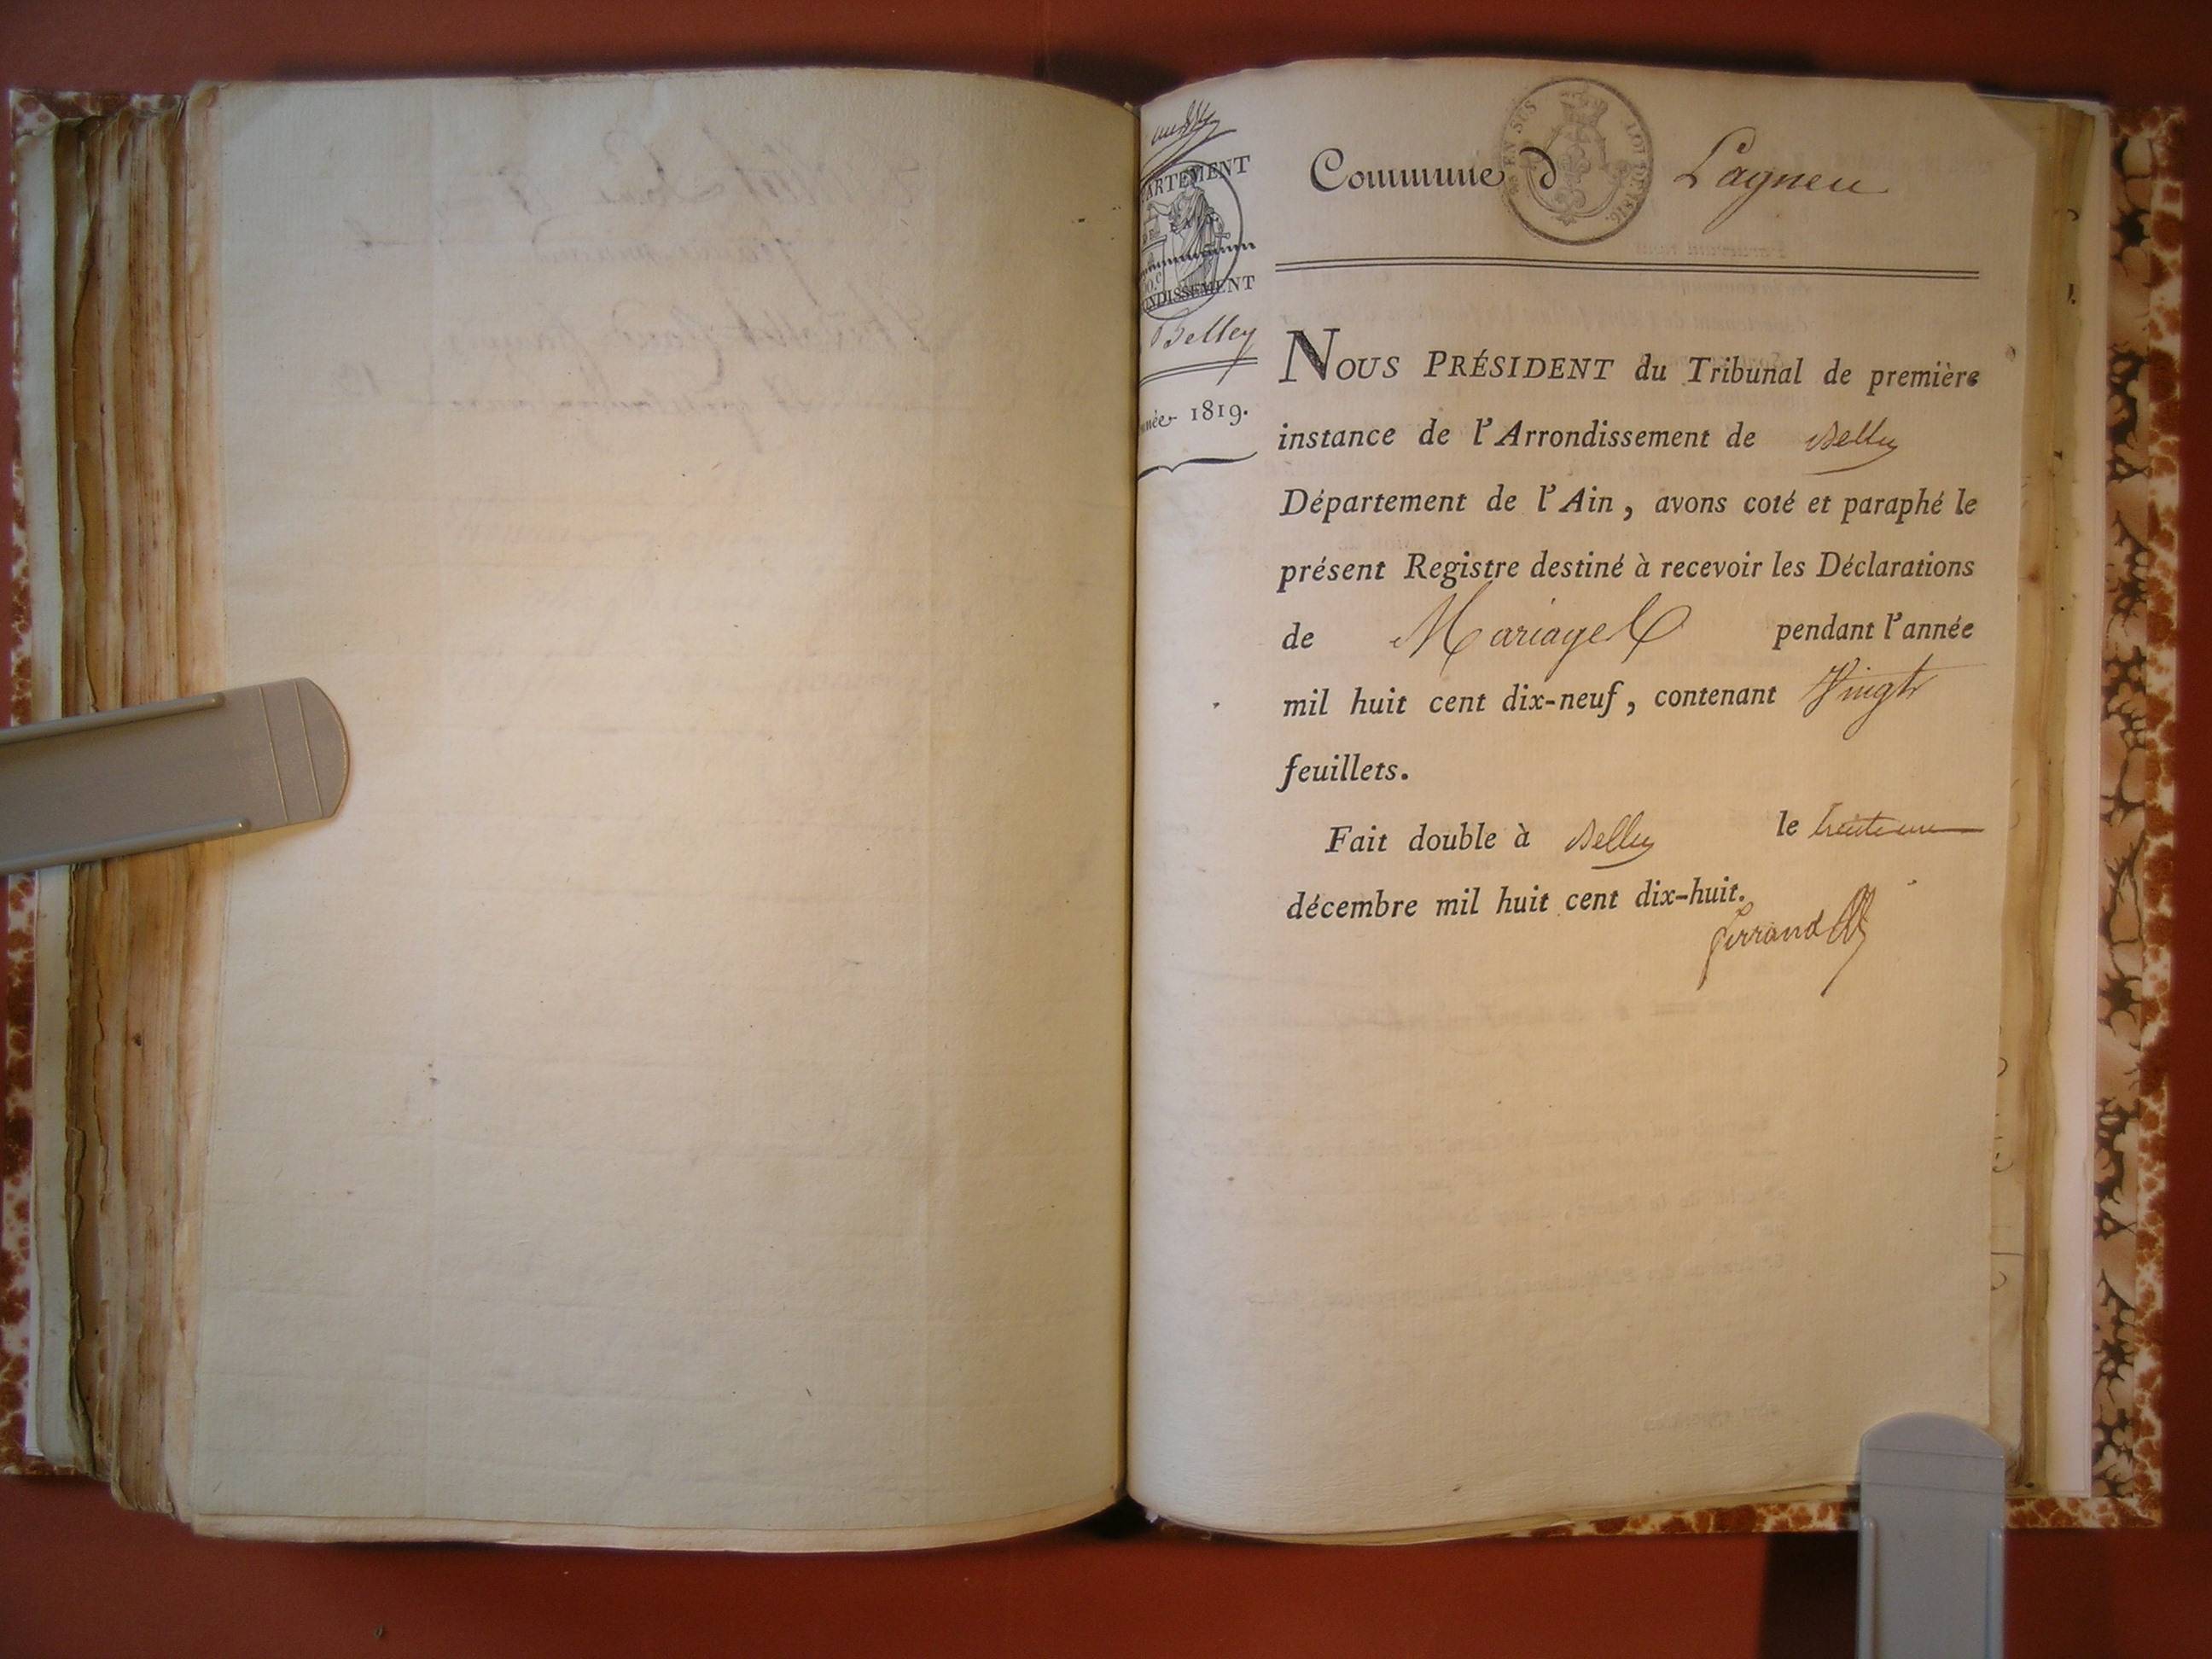 ARTEMENT
NDISSEMENT
Belley
née 1819.
EN SUS
LOI DE 1816.
Commune d Lagneu
NOUS PRÉSIDENT du Tribunal de première
instance de l'Arrondissement de Belley
Département de l'Ain, avons coté et paraphé le
présent Registre destiné à recevoir les Déclarations
de Mariages pendant l'année
mil huit cent dix-neuf, contenant Vingt
feuillets.
Fait double à Belley le trente un
décembre mil huit cent dix-huit.